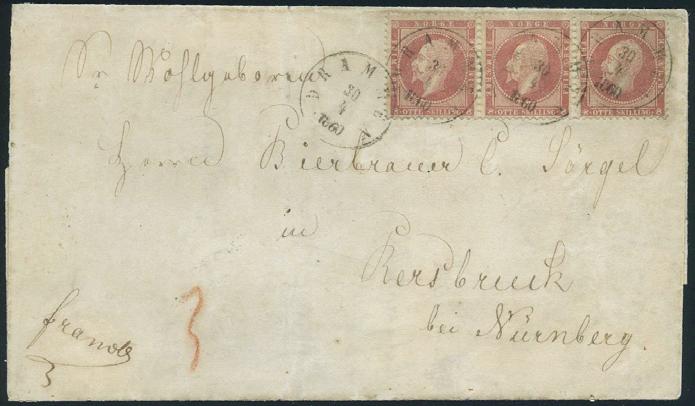 NORGE NORGE NORGE
OTTE SKILLING OTTE SKILLING OTTE SKILLING
DRAMMEN
30
4
1860
Sr Wohlgeboren
Herrn Bierbrauer C. Sörgel
in
Hersbruck
bei Nürnberg.
franco
3